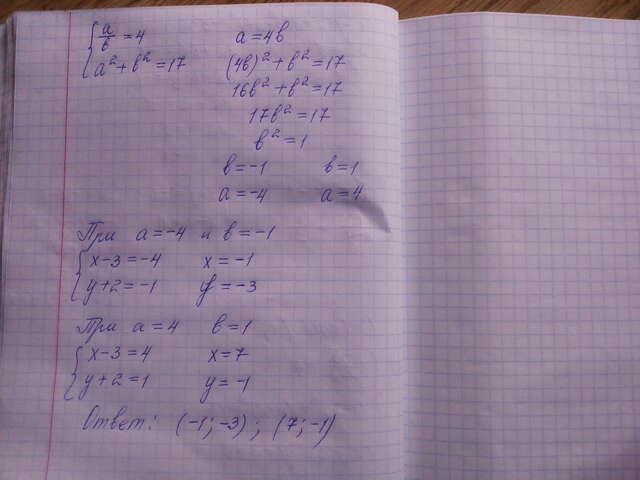 a/b = 4     a = 4b
a² + b² = 17     (4b)² + b² = 17
16b² + b² = 17
17b² = 17
b² = 1
b = -1     b = 1
a = -4     a = 4
При a = -4 и b = -1
x - 3 = -4     x = -1
y + 2 = -1     y = -3
При a = 4 b = 1
x - 3 = 4     x = 7
y + 2 = 1     y = -1
Ответ: (-1; -3); (7; -1)